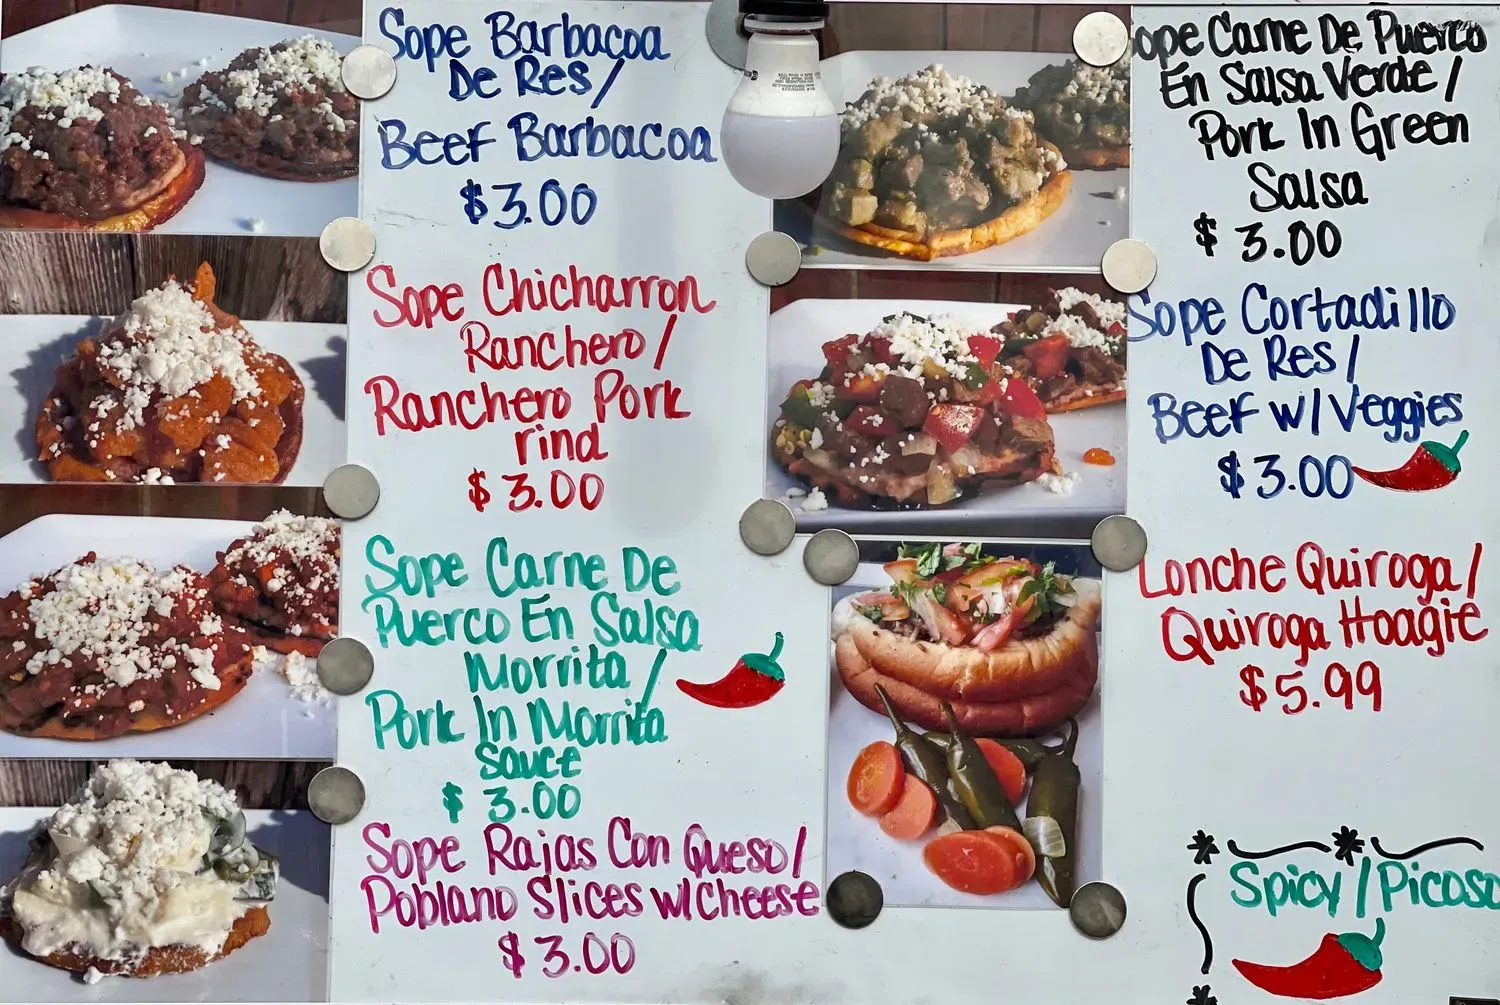 Sope Barbacoa
De Res/
Beef Barbacoa
$3.00
Sope Chicharron
Ranchero/
Ranchero Pork
rind
$3.00
Sope Carne De
Puerco En Salsa
Morrita/
Pork In Morrita
Sauce
$3.00
Sope Rajas Con Queso/
Poblano Slices w/Cheese
$3.00
Sope Carne De Puerco
En Salsa Verde/
Pork In Green
Salsa
$3.00
Sope Cortadillo
De Res/
Beef w/Veggies
$3.00
Lonche Quiroga/
Quiroga Hoagie
$5.99
Spicy/Picoso